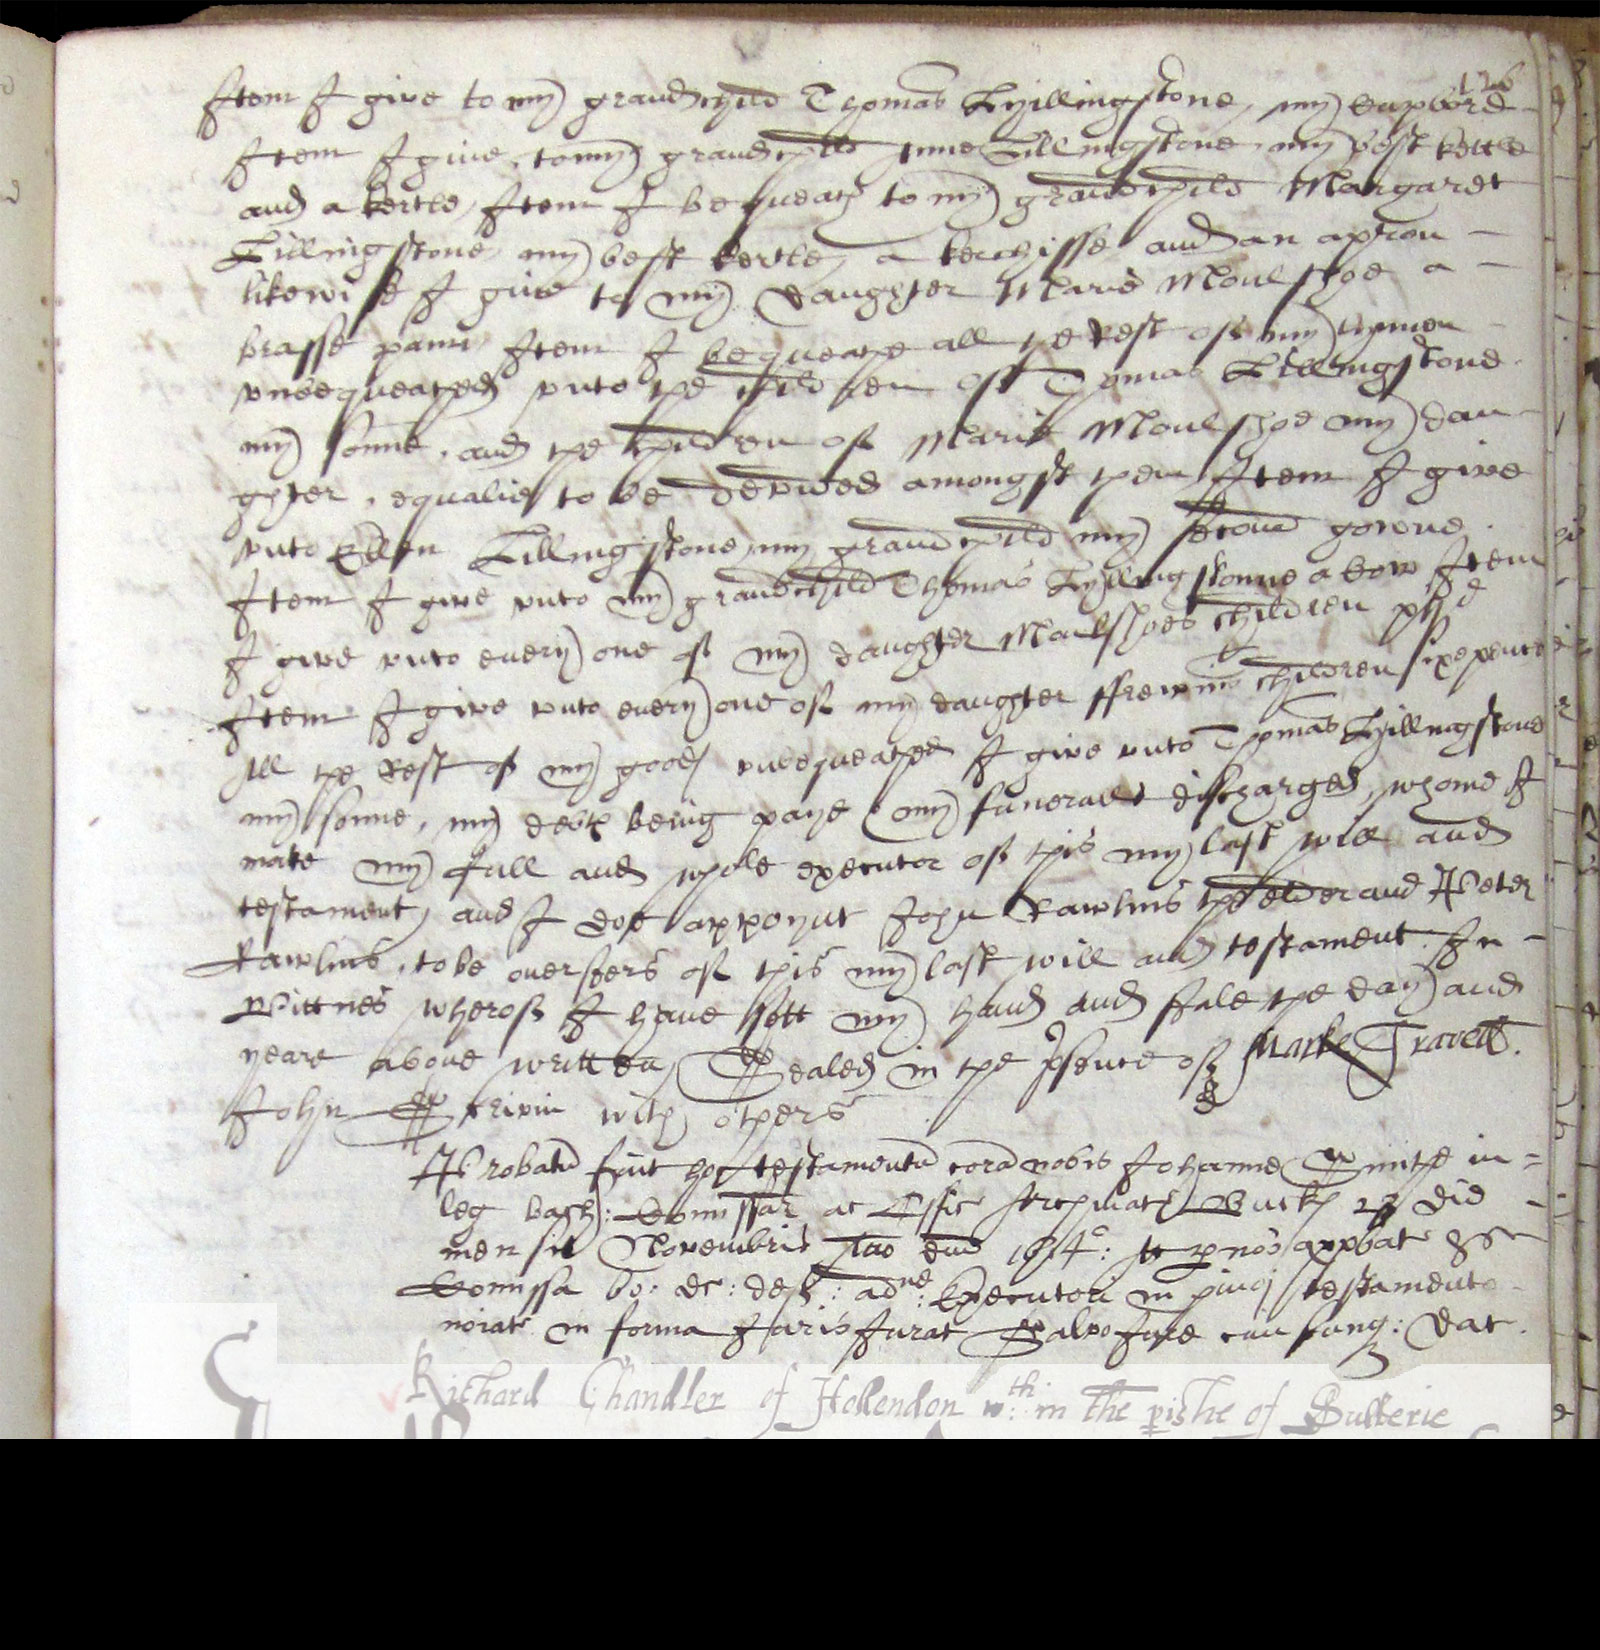 126
Item I give to my grandchyld Thomas Lyillingstone, my cupbord
Item I give to my grandchyld Anne Lillingstone, my best kettle
and a kertle, Item I bequeath to my grandchyld Margaret
Lillingstone, my best kertle, a kerchiffe and an apron
likewise I give to my daughter Marie Moulshoe a
brasse pann, Item I bequeathe all the rest of my lynnen
unbequeathed unto the children of Thomas Lillingstone
my sonne, and the children of Marie Moulshoe my dau
ghter, equalie to be devided amongst them Item I give
unto Ellen Lillingstone my grandchyld my second gowne.
Item I give unto my grandchild Thomas Lyllingstonne a cow Item
I give unto every one of my daughter Moulshoes children
Item I give unto every one of my daughter children sixepence
All the rest of my goods unbequeathed I give unto Thomas Lyillingstone
my sonne, my debts being payde my funeralls discharged, whome I
make my full and whole executor of this my last will and
testament, and I doe appoynt John Rawlins the elder and Peter
Rawlins, to be overseers of this my last will and testament. In
wittnes wherof I have sett my hand and seale the day and
yeare above written, Sealed in the psence of Marke Travell.
John Scrivin with others
Probatu fuit hoc testamentu cora nobis Johanne Smithe in
leg bach: Comissar ac Offic Archinat Buck 23 die
mensis Novembris Ano dni 1614: Ac p nos approbat &c
Comissa bo: &c: def: ad ne: Executori in testamento
noiat in forma Juris Jurat Salvo Jure cuiuscunq: Dat.
Richard Chandler of Hollendon wth in the pishe of Sulberie